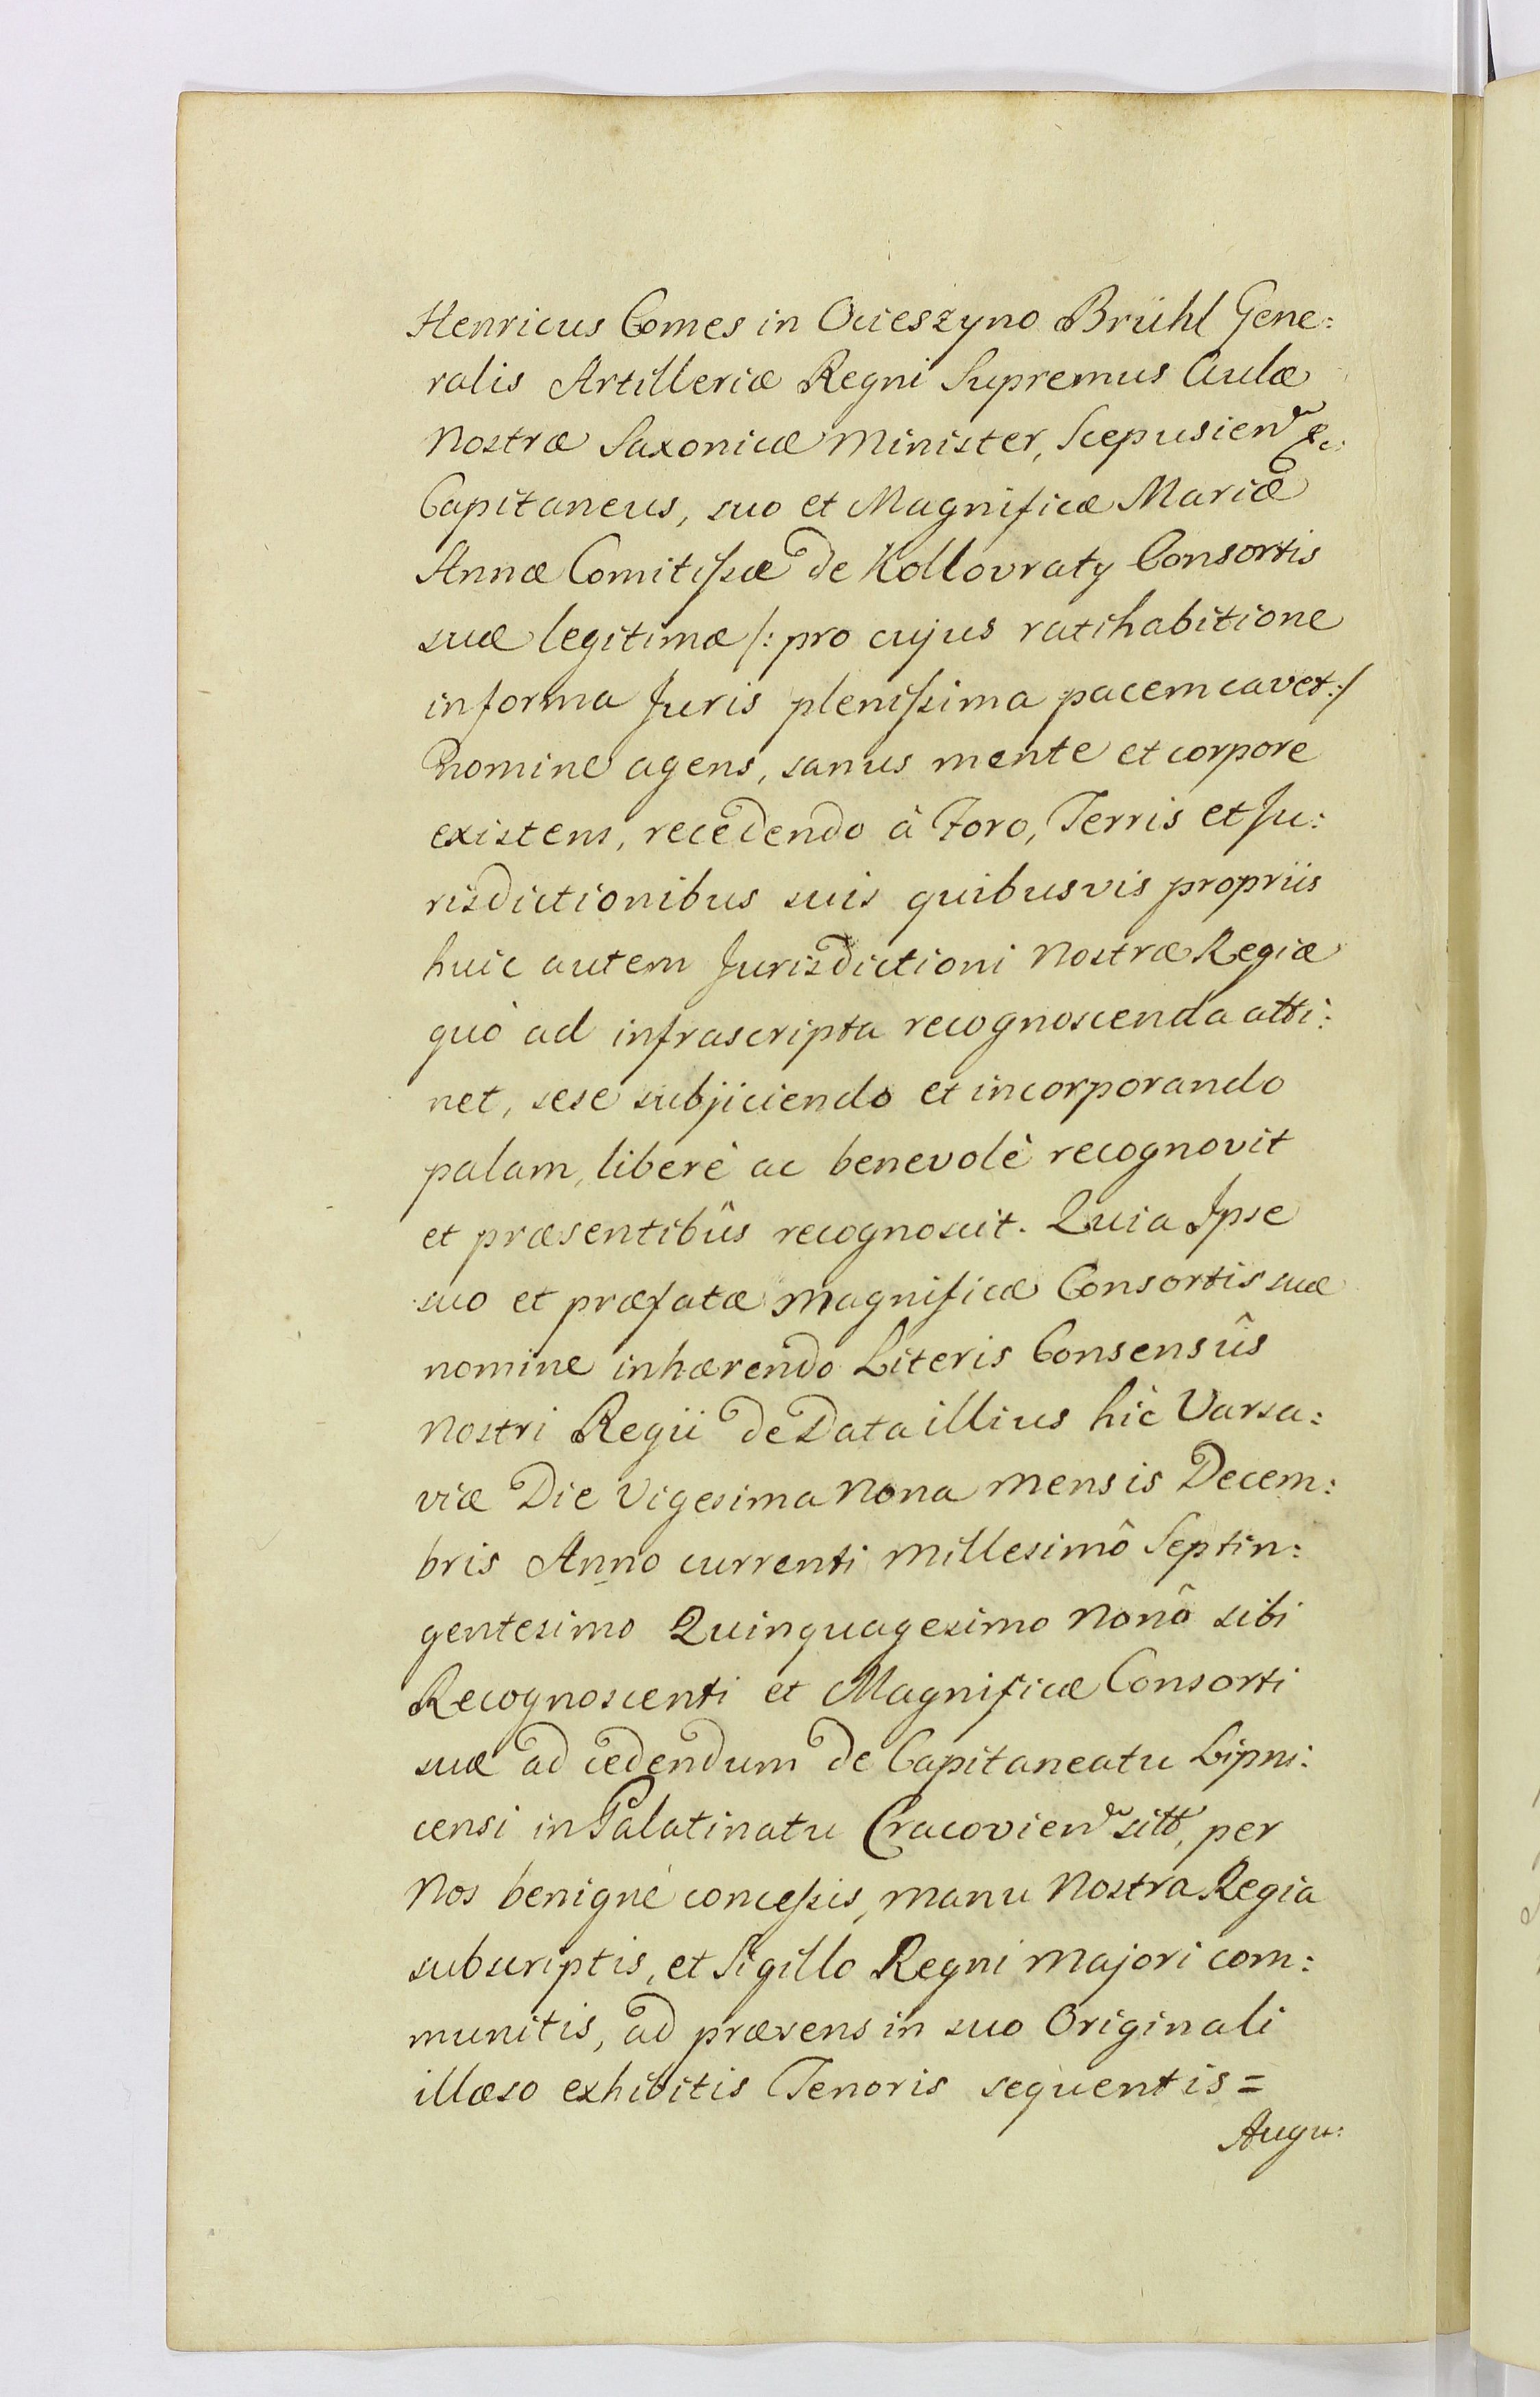 Henricus Comes in Ocieszyno Brühl Gene:
ralis Artilleriæ Regni Supremus Aulæ
Nostræ Saxonicæ Minister, Scepusien &c:
Capitaneus, suo et Magnificæ Mariæ
Annæ Comitißæ de Kollovraty Consortis
suæ legitimæ /: pro cujus ratihabitione
in forma Juris plenißima pacem cavet :/
nomine agens, sanus mente et corpore
existens, recedendo à Foro, Terris et Ju:
risdictionibus suis quibusvis propriis
huic autem Jurisdictioni Nostræ Regiæ
quò ad infrascripta recognoscenda atti:
net, sese subjiciendo et incorporando
palam, liberè ac benevolè recognovit
et præsentibûs recognoscit. Quia Ipse
suo et præfatæ Magnificæ Consortis suæ
nomine inhærendo Literis Consensûs
Nostri Regii de Data illius hîc Varsa:
viæ Die Vigesima Nona Mensis Decem:
bris Anno currenti Millesimô Septin:
gentesimo Quinquagesimo Nonô sibi
Recognoscenti et Magnificæ Consorti
suæ ad cedendum de Capitaneatu Lipni:
censi in Palatinatu Cracovien sitt, per
Nos benignè conceßis, manu Nostra Regia
subscriptis, et Sigillo Regni Majori com:
munitis, ad præsens in suo Originali
illæso exhibitis Tenoris sequentis =
Augu: